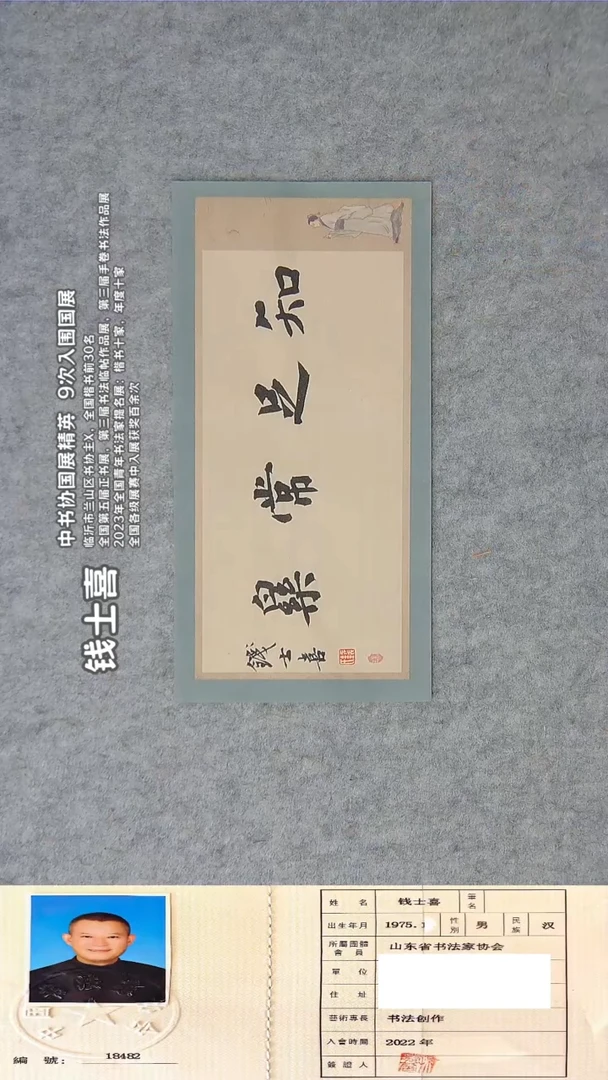 钱士喜
中书协国展精英 9次入围国展
临沂市兰山区书协主X,全国楷书前30名
全国第五届正书展、第三届书法临帖作品展、第三届手卷书法作品展
2023年全国青年书法家提名展:楷书十家、年度十家
全国各级展赛中入展获奖百余次
知足常樂
錢士喜
編 號: 18482
姓 名 钱士喜 筆名
出生年月 1975.1 性別 男 民族 汉
所屬團體會員 山东省书法家协会
單 位
住 址
藝術專長 书法创作
入會時間 2022 年
簽證人